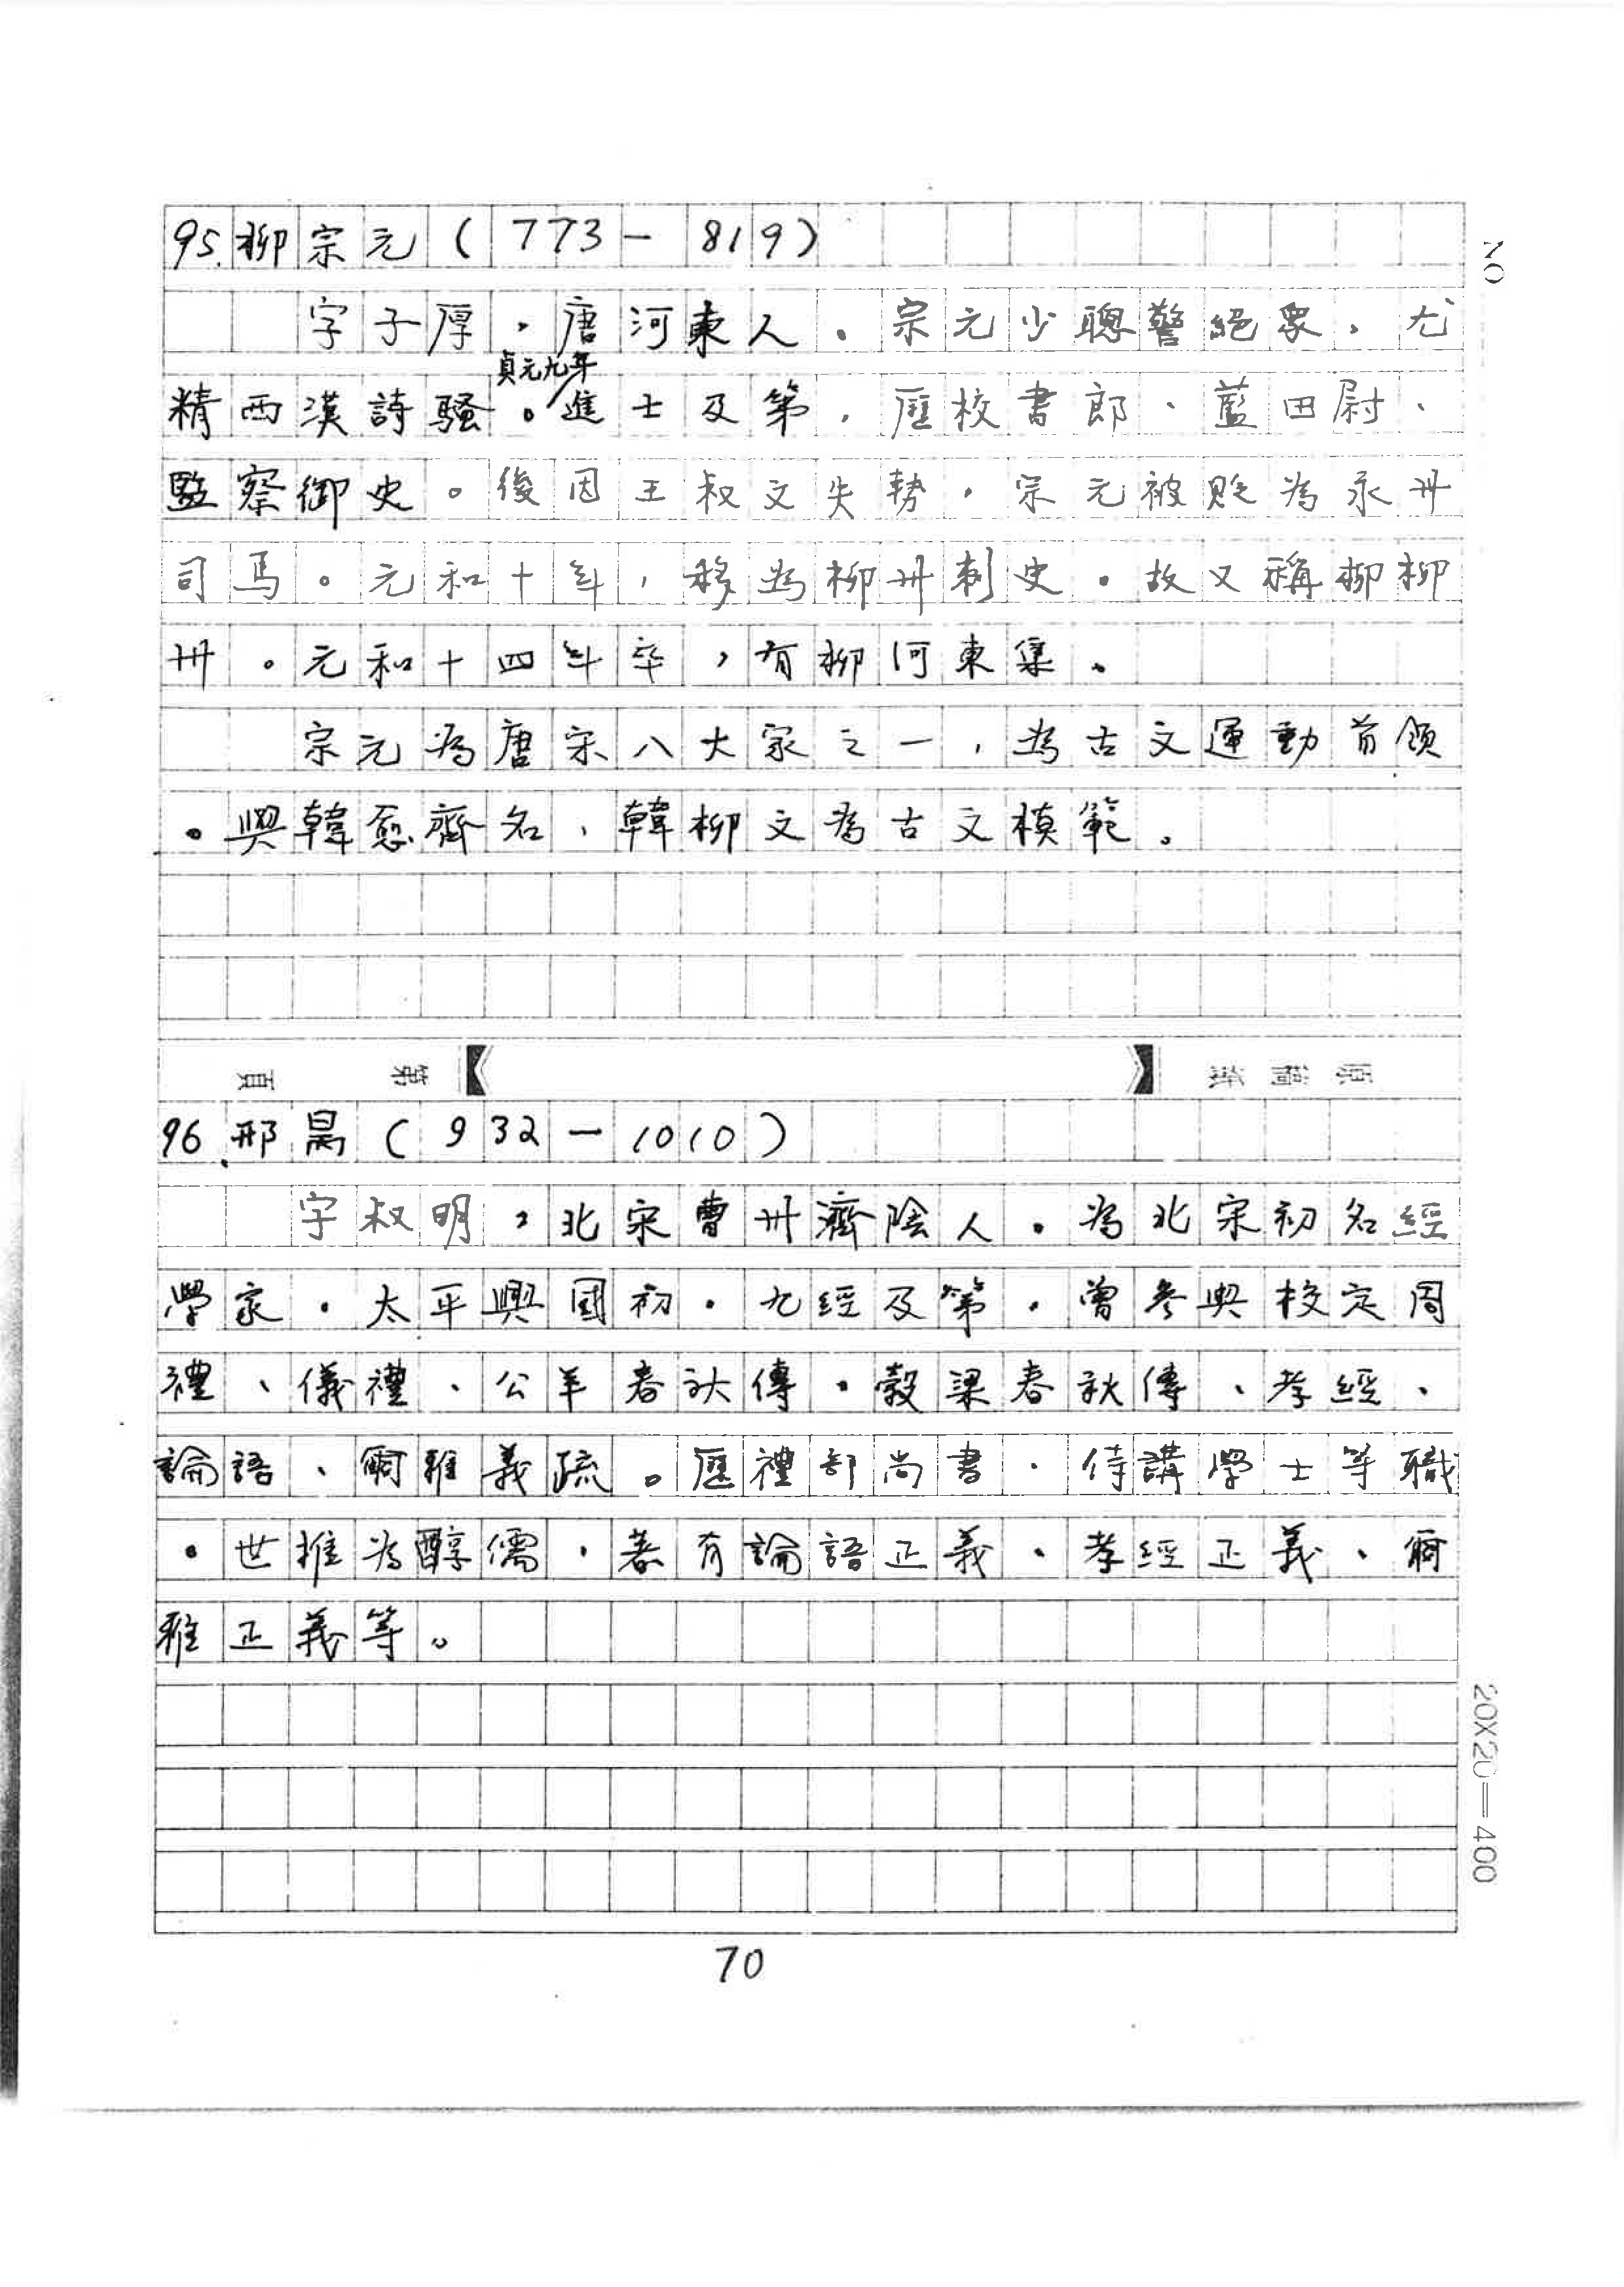 NO
95.柳宗元(773-819)
字子厚，唐河東人。宗元少聰警絕衆，尤
貞元九年
精西漢詩騷。進士及第，歷校書郎、藍田尉、
監察御史。後因王叔文失勢，宗元被貶為永州
司馬。元和十年，移為柳州刺史。故又稱柳柳
州。元和十四年卒，有柳河東集。
宗元為唐宋八大家之一，為古文運動首領
。與韓愈齊名，韓柳文為古文模範。
頁 第 原稿紙
96.邢昺(932-1010)
字叔明，北宋曹州濟陰人。為北宋初名經
學家。太平興國初，九經及第，曾參與校定周
禮、儀禮、公羊春秋傳、穀梁春秋傳、孝經、
論語、爾雅義疏。歷禮部尚書、侍講學士等職
。世推為醇儒，著有論語正義、孝經正義、爾
雅正義等。
20X20=400
70